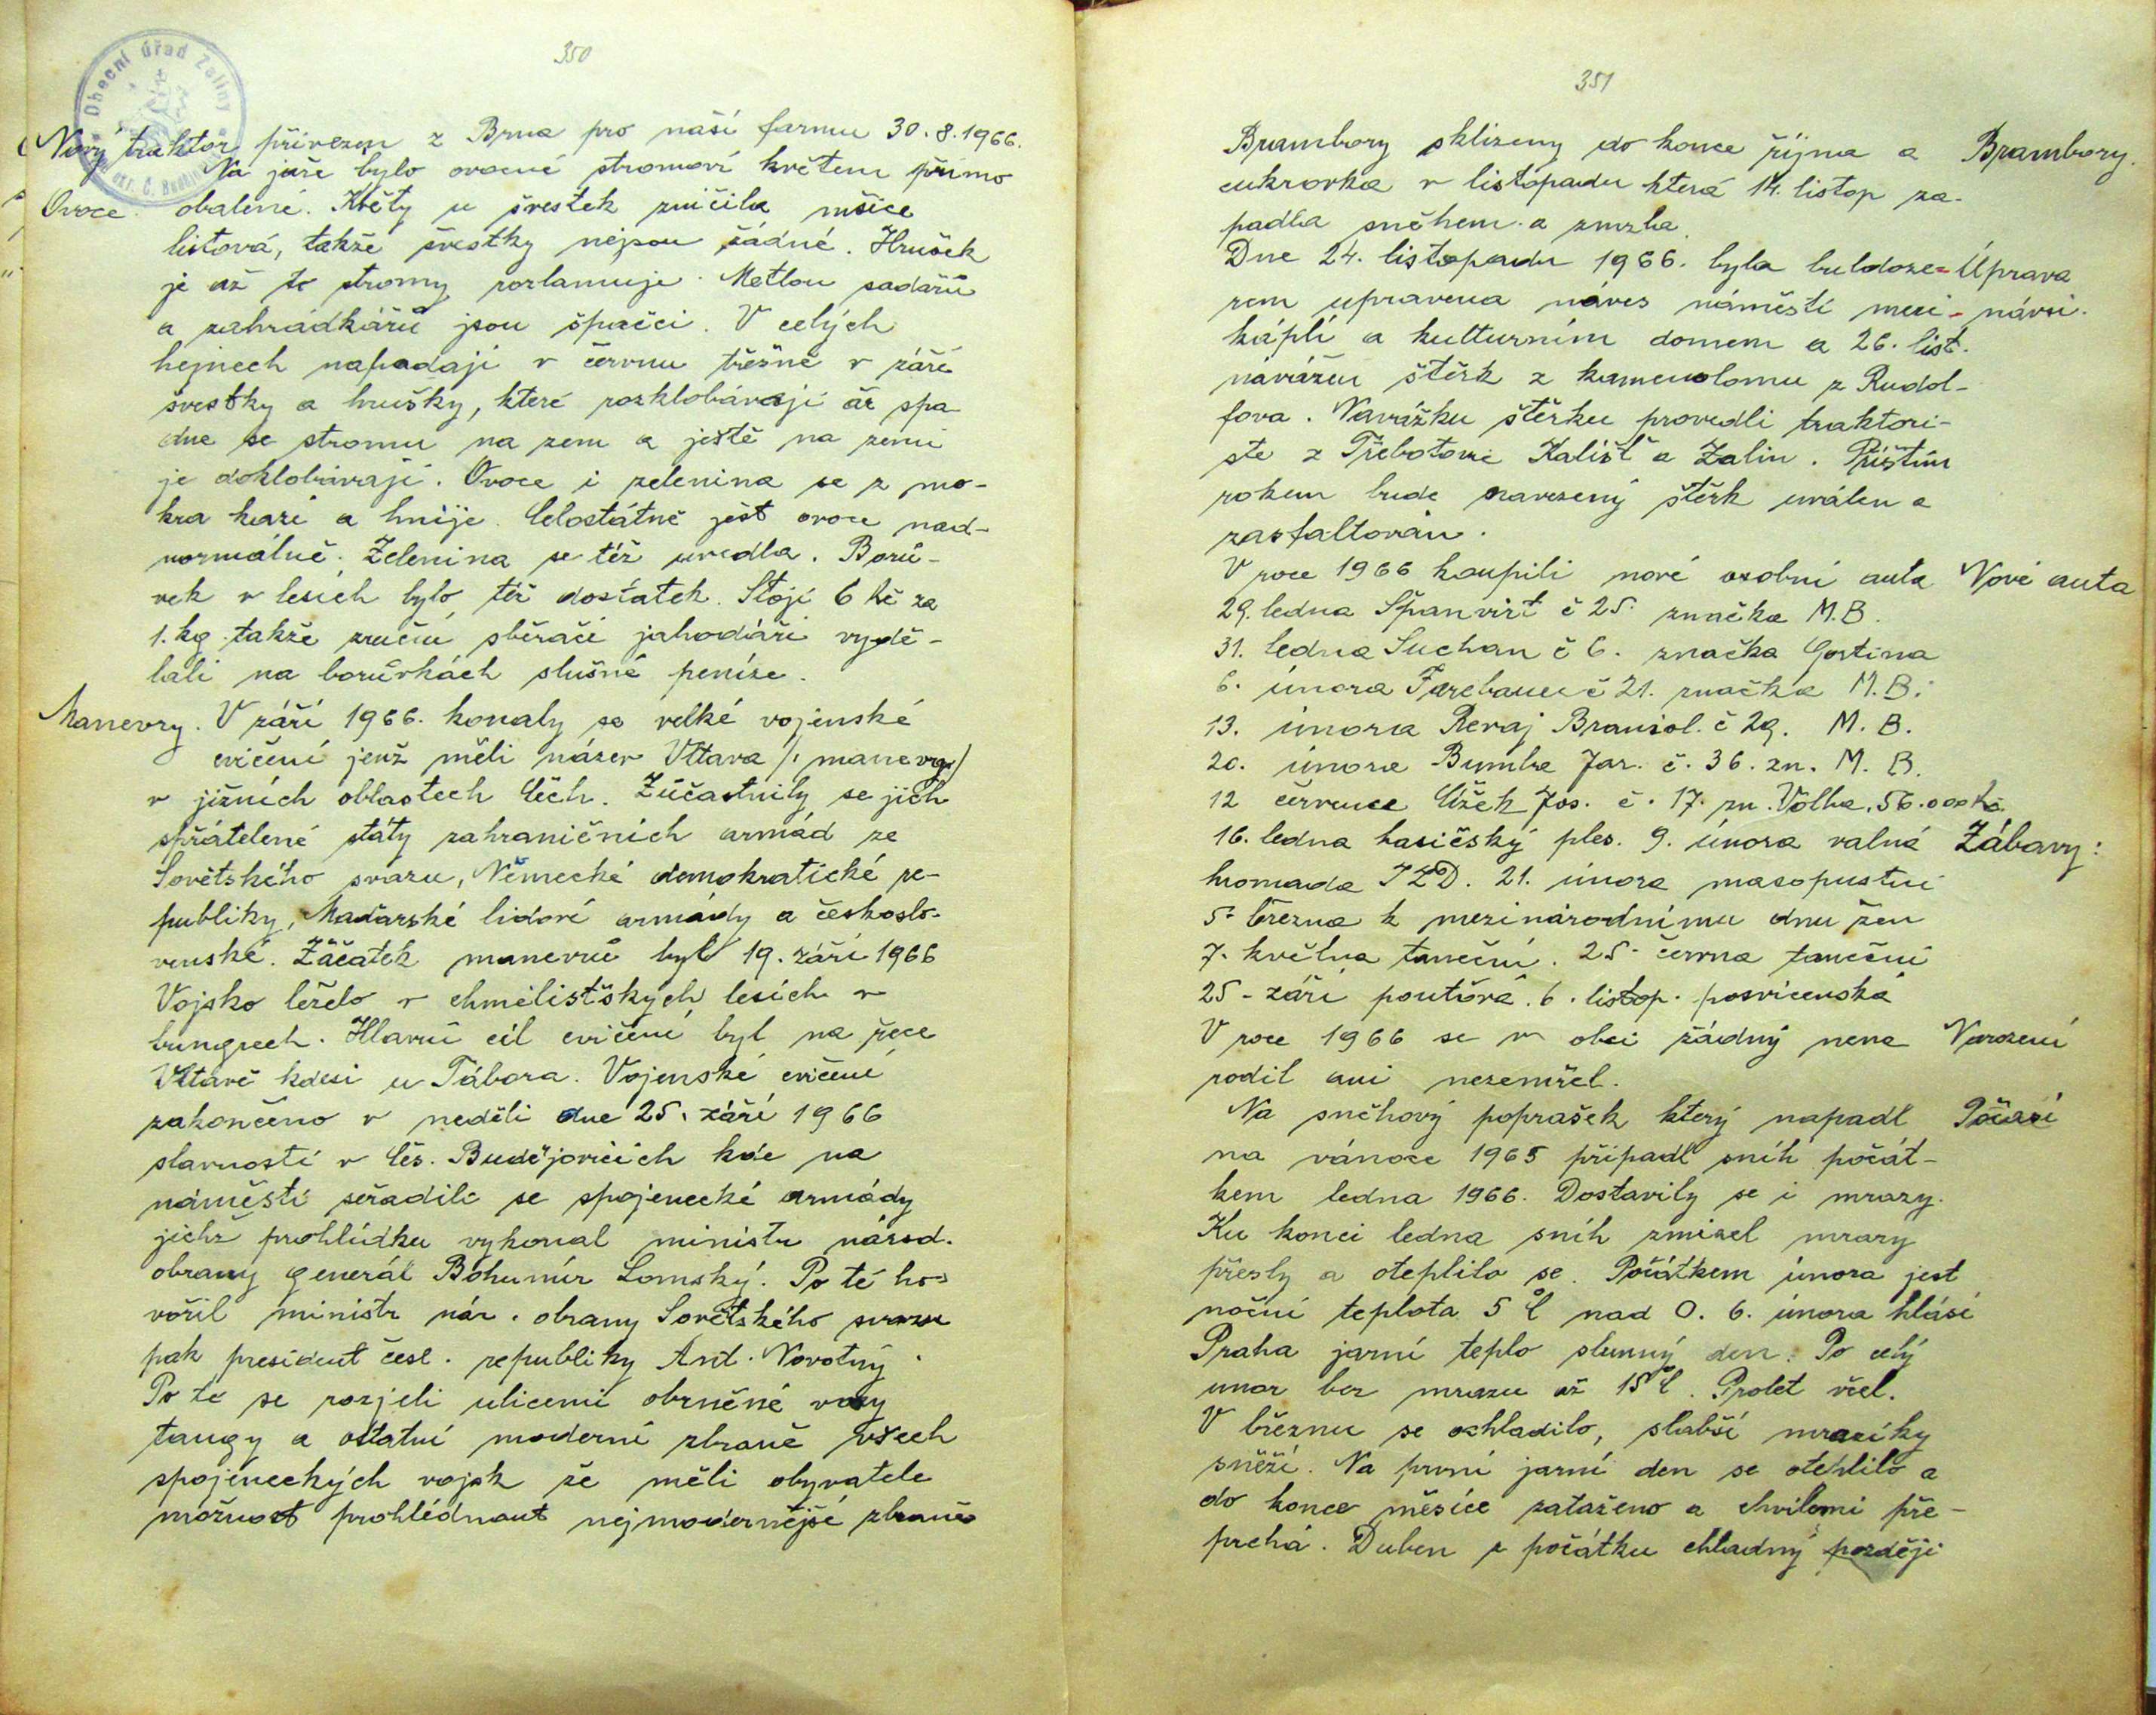 350
Obecní úřad Zaliny
Nový traktor přivezen z Brna pro naší farmu 30.8.1966.
Na jaře bylo ovocné stromoví květem přímo
Ovoce. obalené. Květy u švestek zničila mšice
listová, takže švestky nejsou žádné. Hrušek
je až to stromy rozlamuje. Metlou sadařů
a zahrádkářů jsou špačci. V celých
hejnech napadají v červnu třešně v září
švestky a hrušky, které rozklobávají až spa
dne se stromu na zem a ještě na zemi
je doklobávají. Ovoce i zelenina se z mo-
kra kazí a hnije. Celostátně jest ovoce nad-
normálně. Zelenina se též uvedla. Borů-
vek v lesích bylo též dostatek. Stojí 6 kč za
1.kg takže zruční sběrači jahodáři vydě-
lali na borůvkách slušné peníze.
Manevry. V září 1966. konaly se velké vojenské
cvičení jenž měli název Vltava /: manevry/
v jižních oblastech Čech. Zúčastnily se jich
spřátelené státy zahraničních armád ze
Sovětského svazu, Německé demokratické re-
publiky, Maďarské lidové armády a českoslo-
venské. Začátek manevrů byl 19. září 1966
Vojsko leželo v chmelistšských lesích v
bungrech. Hlavní cíl cvičení byl na řece
Vltavě kdesi u Tábora. Vojenské cvičení
zakončeno v neděli dne 25. září 1966
slavností v Čes. Budějovicích kde na
náměstí seřadili se spojenecké armády
jichž prohlídku vykonal ministr národ.
obrany generál Bohumír Lomský. Po té ho-
vořil ministr nár. obrany Sovětského svazu
pak president česl. republiky Ant. Novotný.
Po té se rozjeli ulicemi obrněné vozy
tangy a ostatní moderní zbraně všech
spojeneckých vojsk že měli obyvatele
možnost prohlédnout nejmodernější zbraně
351
Brambory sklizeny do konce října a Brambory.
cukrovka v listopadu která 14. listop za-
padla sněhem a zmrzla.
Dne 24. listopadu 1966. byla buldoze- Úprava
rem upravena náves náměstí mezi - návsi.
káplí a kulturním domem a 26. list.
navážen štěrk z kamenolomu z Rudol-
fova. Navážku štěrku provedli traktori-
ste z Třebotovic Kališť a Zalin. Příštím
rokem bude navezený štěrk uválen a
zasfaltován.
V roce 1966 koupili nové osobní auta Nové auta
29. ledna Španvirt č 25. značka M.B.
31. ledna Suchan č 6. značka Gostina
6. února Farebauer č 21. značka M.B.
13. února Revaj Branisl. č 29. M.B.
20. února Bumba Jar. č. 36. zn. M.B.
12 července Čížek Jos. č. 17. zn. Volha. 56.000 kč
16. ledna hasičský ples. 9. února valná Zábavy:
hromada JZD. 21. února masopustní
5. března k mezinárodnímu dnu žen
7. května taneční. 25. června taneční
25. září poutová. 6. listop. posvícenská
V roce 1966 se v obci žádný nena Narození
rodil ani nezemřel.
Na sněhový poprašek který napadl Počasí
na vánoce 1965 připadl sníh počát-
kem ledna 1966. Dostavily se i mrazy.
Ku konci ledna sníh zmizel mrazy
přešly a oteplilo se. Počátkem února jest
noční teplota 5°C nad 0. 6. února hlásí
Praha jarní teplo slunný den. Po celý
unor bez mrazu až 15°C. Prolet včel.
V březnu se ochladilo, slabší mrazíky
sněží. Na první jarní den se oteplilo a
do konce měsíce zataženo a chvílemi pře-
prchá. Duben z počátku chladný později